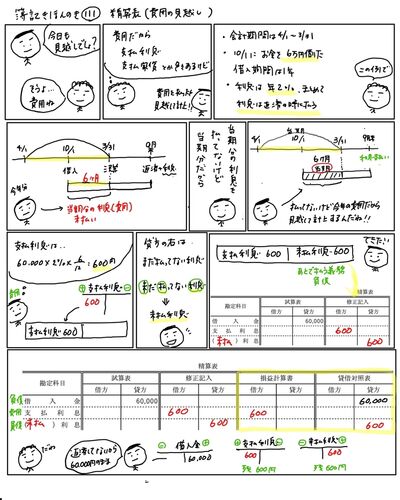 簿記きほんのき111 精算表(費用の見越し)
今日も
見越しでしょ?
そうよ…
費用ね
費用だから
支払利息
支払家賃 とか色々あるけど
費用を払うよ
見越し計上!
・会計期間は4/1〜3/31
・10/1にお金を6万円借りた
借入期間は1年
・利息は年2%。まとめて
利息は返済の時に払う
この例で
4/1
10/1
3/31
9月末
借入
決算
返済+利息
6ヶ月
今年分
当期分の利息(費用)
未払い
当期分の利息を
払ってないけど
当期分だから
6ヶ月
4/1
10/1
3/31
9月末
6ヶ月
払ってないけど今年の費用だから
見越して計上するんだね!!
支払利息は…
60,000×2%×6/12=600円
費用
+支払利息-
600
支払利息 600
貸方の名は
まだ払ってない利息
まだ払ってない利息
未払利息
できたい
支払利息 600 未払利息 600
あとで払う義務
負債
精算表
勘定科目
試算表
修正記入
借方 貸方 借方 貸方
借入金 60,000
支払利息 600
(未払)利息 600
精算表
勘定科目 試算表 修正記入 損益計算書 貸借対照表
借方 貸方 借方 貸方 借方 貸方 借方 貸方
負債 借入金 60,000 60,000
費用 支払利息 600 600
負債 (未払)利息 600 600
だね
返済してないから
60,000円のまま
- 借入金 +
60,000
+ 支払利息 -
600
残600円
- 未払利息 +
600
残600円